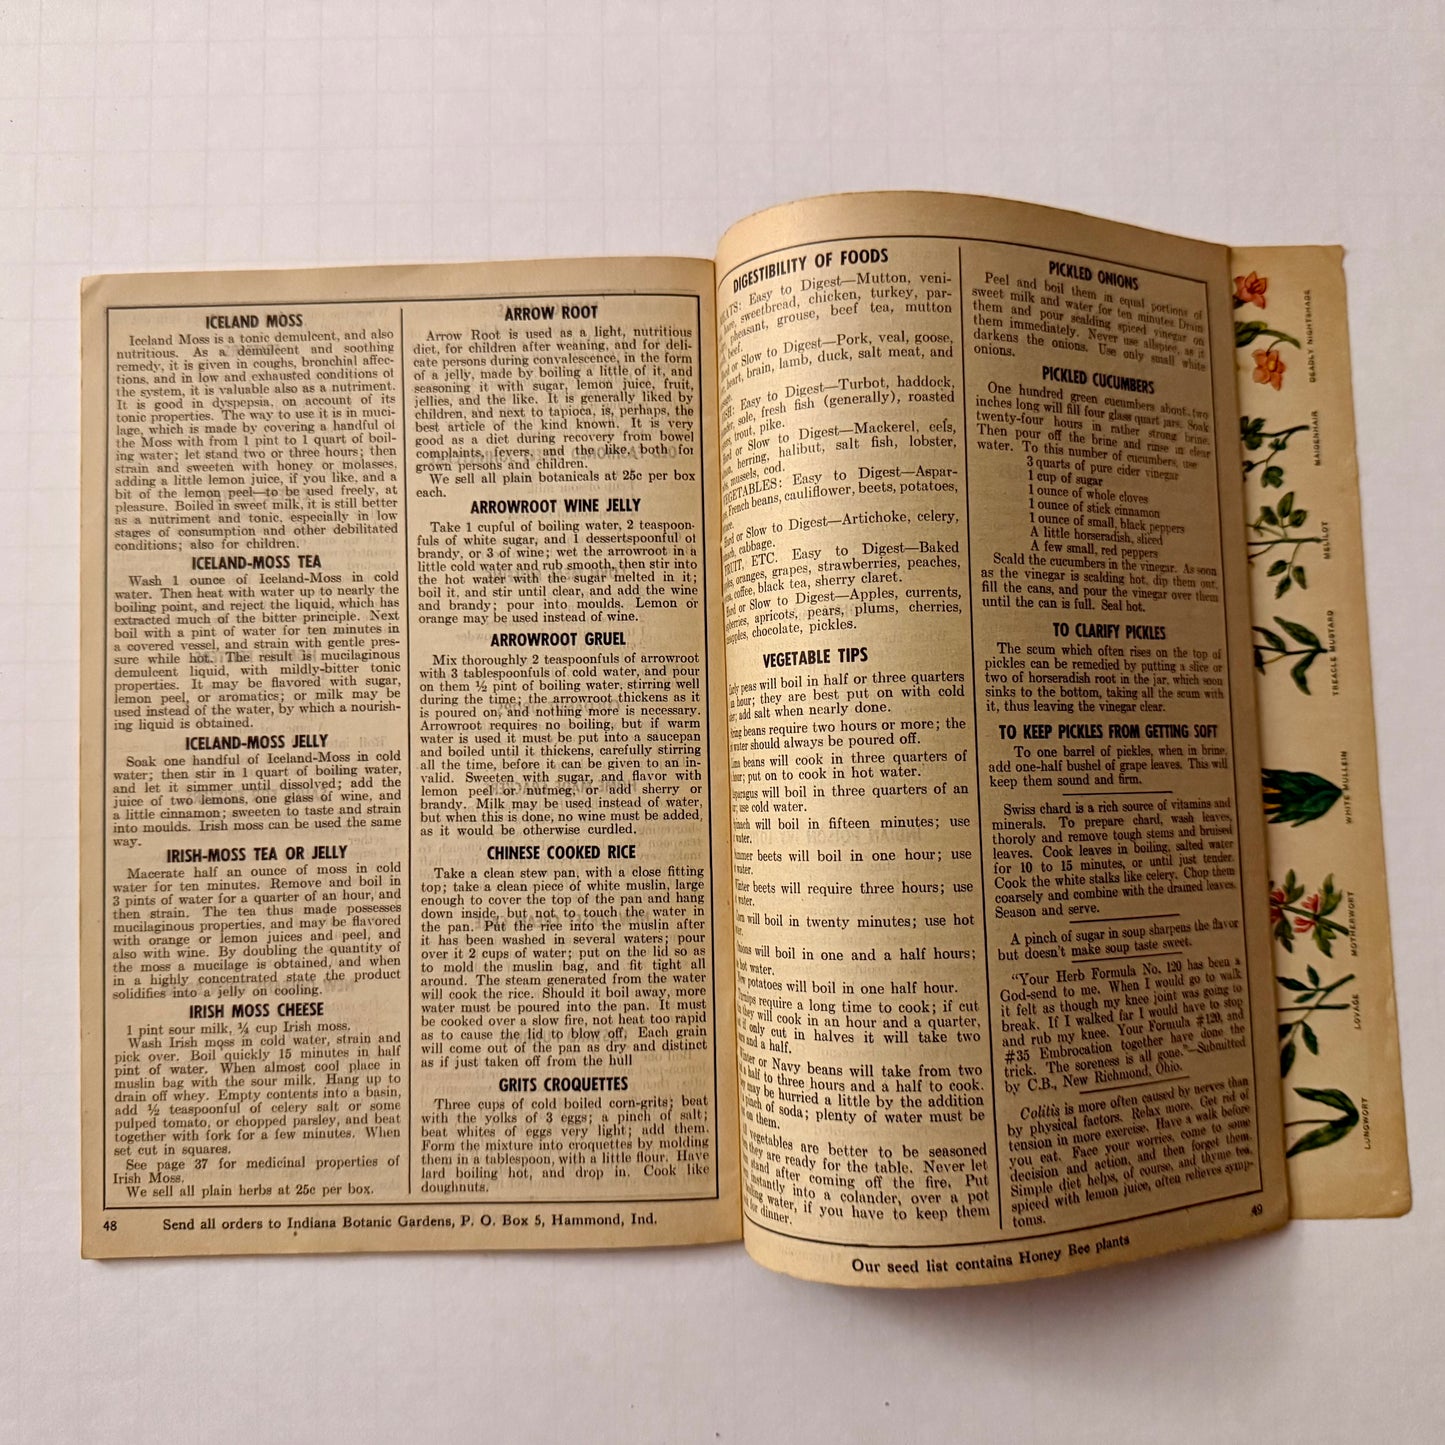 ICELAND MOSS
Iceland Moss is a tonic demulcent, and also
nutritious. As a demulcent and soothing
remedy, it is given in coughs, bronchial affec-
tions, and in low and exhausted conditions of
the system, it is valuable also as a nutriment.
It is good in dyspepsia, on account of its
tonic properties. The way to use it is in muci-
lage, which is made by covering a handful of
the Moss with from 1 pint to 1 quart of boil-
ing water; let stand two or three hours; then
strain and sweeten with honey or molasses,
adding a little lemon juice, if you like, and a
bit of the lemon peel—to be used freely, at
pleasure. Boiled in sweet milk, it is still better
as a nutriment and tonic, especially in low
stages of consumption and other debilitated
conditions; also for children.
ICELAND-MOSS TEA
Wash 1 ounce of Iceland-Moss in cold
water. Then heat with water up to nearly the
boiling point, and reject the liquid, which has
extracted much of the bitter principle. Next
boil with a pint of water for ten minutes in
a covered vessel, and strain with gentle pres-
sure while hot. The result is mucilaginous
demulcent liquid, with mildly-bitter tonic
properties. It may be flavored with sugar,
lemon peel, or aromatics; or milk may be
used instead of the water, by which a nourish-
ing liquid is obtained.
ICELAND-MOSS JELLY
Soak one handful of Iceland-Moss in cold
water; then stir in 1 quart of boiling water,
and let it simmer until dissolved; add the
juice of two lemons, one glass of wine, and
a little cinnamon; sweeten to taste and strain
into moulds. Irish moss can be used the same
way.
IRISH-MOSS TEA OR JELLY
Macerate half an ounce of moss in cold
water for ten minutes. Remove and boil in
3 pints of water for a quarter of an hour, and
then strain. The tea thus made possesses
mucilaginous properties, and may be flavored
with orange or lemon juices and peel, and
also with wine. By doubling the quantity of
the moss a mucilage is obtained, and when
in a highly concentrated state the product
solidifies into a jelly on cooling.
IRISH MOSS CHEESE
1 pint sour milk, ¼ cup Irish moss.
Wash Irish moss in cold water, strain and
pick over. Boil quickly 15 minutes in half
pint of water. When almost cool place in
muslin bag with the sour milk. Hang up to
drain off whey. Empty contents into a basin,
add ½ teaspoonful of celery salt or some
pulped tomato, or chopped parsley, and beat
together with fork for a few minutes. When
set cut in squares.
See page 37 for medicinal properties of
Irish Moss.
We sell all plain herbs at 25c per box.
ARROW ROOT
Arrow Root is used as a light, nutritious
diet, for children after weaning, and for deli-
cate persons during convalescence, in the form
of a jelly, made by boiling a little of it, and
seasoning it with sugar, lemon juice, fruit,
jellies, and the like. It is generally liked by
children, and next to tapioca, is, perhaps, the
best article of the kind known. It is very
good as a diet during recovery from bowel
complaints, fevers, and the like, both for
grown persons and children.
We sell all plain botanicals at 25c per box
each.
ARROWROOT WINE JELLY
Take 1 cupful of boiling water, 2 teaspoon-
fuls of white sugar, and 1 dessertspoonful of
brandy, or 3 of wine; wet the arrowroot in a
little cold water and rub smooth, then stir into
the hot water with the sugar melted in it;
boil it, and stir until clear, and add the wine
and brandy; pour into moulds. Lemon or
orange may be used instead of wine.
ARROWROOT GRUEL
Mix thoroughly 2 teaspoonfuls of arrowroot
with 3 tablespoonfuls of cold water, and pour
on them ½ pint of boiling water, stirring well
during the time; the arrowroot thickens as it
is poured on, and nothing more is necessary.
Arrowroot requires no boiling, but if warm
water is used it must be put into a saucepan
and boiled until it thickens, carefully stirring
all the time, before it can be given to an in-
valid. Sweeten with sugar, and flavor with
lemon peel or nutmeg, or add sherry or
brandy. Milk may be used instead of water,
but when this is done, no wine must be added,
as it would be otherwise curdled.
CHINESE COOKED RICE
Take a clean stew pan, with a close fitting
top; take a clean piece of white muslin, large
enough to cover the top of the pan and hang
down inside, but not to touch the water in
the pan. Put the rice into the muslin after
it has been washed in several waters; pour
over it 2 cups of water; put on the lid so as
to mold the muslin bag, and fit tight all
around. The steam generated from the water
will cook the rice. Should it boil away, more
water must be poured into the pan. It must
be cooked over a slow fire, not heat too rapid
as to cause the lid to blow off. Each grain
will come out of the pan as dry and distinct
as if just taken off from the hull
GRITS CROQUETTES
Three cups of cold boiled corn-grits; beat
with the yolks of 3 eggs; a pinch of salt;
beat whites of eggs very light; add them.
Form the mixture into croquettes by molding
them in a tablespoon, with a little flour. Have
lard boiling hot, and drop in. Cook like
doughnuts.
48 Send all orders to Indiana Botanic Gardens, P. O. Box 5, Hammond, Ind.
DIGESTIBILITY OF FOODS
Easy to Digest—Mutton, veni-
sweetbread, chicken, turkey, par-
pheasant, grouse, beef tea, mutton
beef.
or Slow to Digest—Pork, veal, goose,
heart, brain, lamb, duck, salt meat, and
Easy to Digest—Turbot, haddock,
sole, fresh fish (generally), roasted
trout, pike.
or Slow to Digest—Mackerel, eels,
herring, halibut, salt fish, lobster,
mussels, cod.
Easy to Digest—Aspar-
French beans, cauliflower, beets, potatoes,
or Slow to Digest—Artichoke, celery,
cabbage.
FRUIT, ETC. Easy to Digest—Baked
oranges, grapes, strawberries, peaches,
coffee, black tea, sherry claret.
or Slow to Digest—Apples, currents,
apricots, pears, plums, cherries,
chocolate, pickles.
VEGETABLE TIPS
peas will boil in half or three quarters
hour; they are best put on with cold
add salt when nearly done.
beans require two hours or more; the
water should always be poured off.
beans will cook in three quarters of
hour; put on to cook in hot water.
will boil in three quarters of an
use cold water.
will boil in fifteen minutes; use
water.
beets will boil in one hour; use
water.
beets will require three hours; use
water.
will boil in twenty minutes; use hot
will boil in one and a half hours;
hot water.
potatoes will boil in one half hour.
require a long time to cook; if cut
they will cook in an hour and a quarter,
only cut in halves it will take two
and a half.
or Navy beans will take from two
a half to three hours and a half to cook.
may be hurried a little by the addition
pinch of soda; plenty of water must be
on them.
vegetables are better to be seasoned
they are ready for the table. Never let
stand after coming off the fire. Put
instantly into a colander, over a pot
water, if you have to keep them
for dinner.
PICKLED ONIONS
Peel and boil them in equal portions of
sweet milk and water for ten minutes. Drain
them and pour scalding spiced vinegar on
them immediately. Never use allspice, as it
darkens the onions. Use only small white
onions.
PICKLED CUCUMBERS
One hundred green cucumbers about two
inches long will fill four glass quart jars. Soak
twenty-four hours in rather strong brine.
Then pour off the brine and rinse in clear
water. To this number of cucumbers, use
3 quarts of pure cider vinegar
1 cup of sugar
1 ounce of whole cloves
1 ounce of stick cinnamon
1 ounce of small, black peppers
A little horseradish, sliced
A few small, red peppers
Scald the cucumbers in the vinegar. As soon
as the vinegar is scalding hot, dip them out,
fill the cans, and pour the vinegar over them
until the can is full. Seal hot.
TO CLARIFY PICKLES
The scum which often rises on the top of
pickles can be remedied by putting a slice or
two of horseradish root in the jar, which soon
sinks to the bottom, taking all the scum with
it, thus leaving the vinegar clear.
TO KEEP PICKLES FROM GETTING SOFT
To one barrel of pickles, when in brine,
add one-half bushel of grape leaves. This will
keep them sound and firm.
Swiss chard is a rich source of vitamins and
minerals. To prepare chard, wash leaves,
thoroly and remove tough stems and bruised
leaves. Cook leaves in boiling, salted water
for 10 to 15 minutes, or until just tender.
Cook the white stalks like celery. Chop them
coarsely and combine with the drained leaves.
Season and serve.
A pinch of sugar in soup sharpens the flavor
but doesn't make soup taste sweet.
"Your Herb Formula No. 120 has been a
God-send to me. When I would go to walk
it felt as though my knee joint was going to
break. If I walked far I would have to stop
and rub my knee. Your Formula #120, and
#35 Embrocation together have done the
trick. The soreness is all gone."—Submitted
by C.B., New Richmond, Ohio.
Colitis is more often caused by nerves than
by physical factors. Relax more. Get rid of
tension in more exercise. Have a walk before
you eat. Face your worries, come to some
decision and action, and then forget them.
Simple diet helps, of course, and thyme tea,
spiced with lemon juice, often relieves symp-
toms.
49
Our seed list contains Honey Bee plants
DEADLY NIGHTSHADE
MAIDENHAIR
MELILOT
TREACLE MUSTARD
WHITE MULLEIN
MOTHERWORT
LOVAGE
LUNGWORT